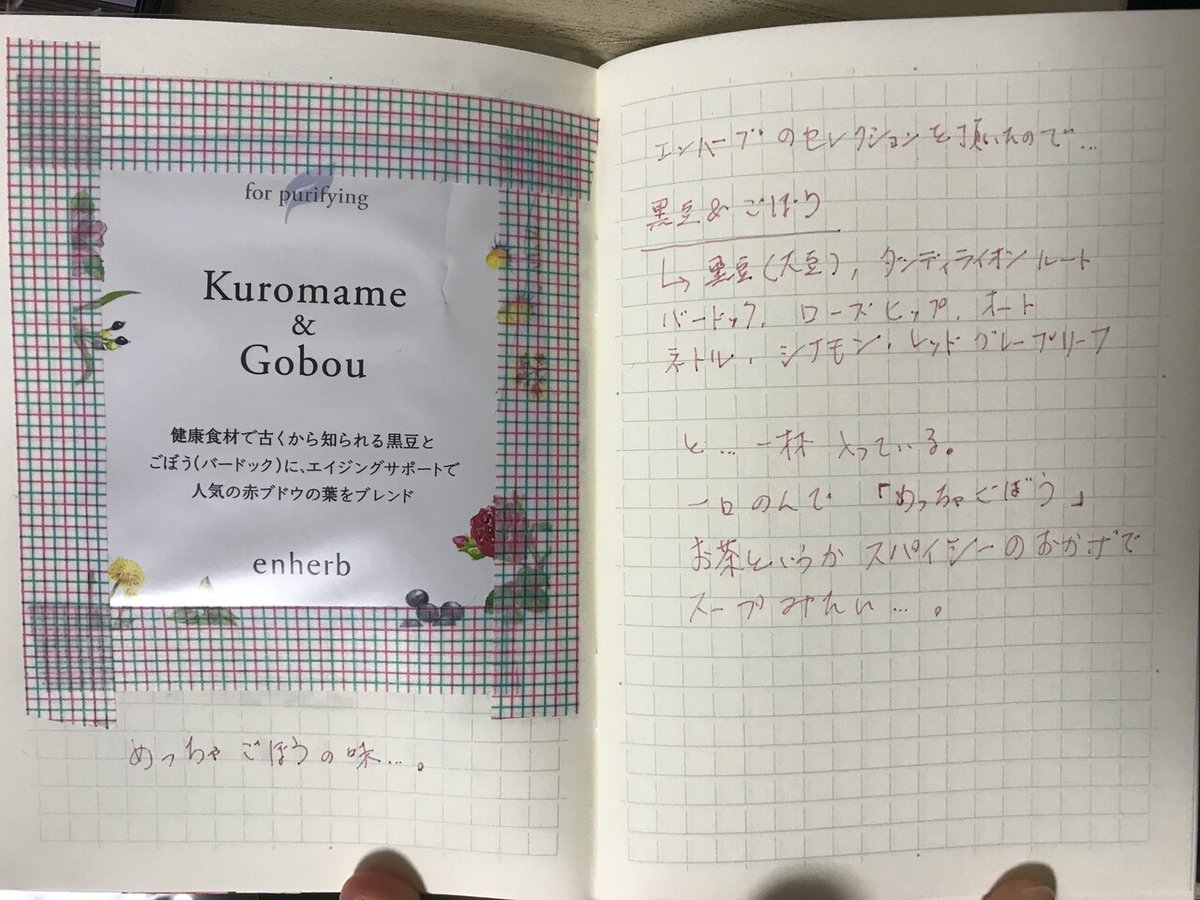 for purifying
Kuromame
&
Gobou
健康食材で古くから知られる黒豆と
ごぼう(バードック)に、エイジングサポートで
人気の赤ブドウの葉をブレンド
enherb
めっちゃごぼうの味…。
エンハーブのセレクションを頂いたので…
黒豆&ごぼう
↳黒豆(大豆), ダンディライオンルート
バードック, ローズヒップ, オート
ネトル・シナモン・レッドグレープリーフ
と…一杯入っている。
一口のんで「めっちゃごぼう」
お茶というかスパイシーのおかげで
スープみたい…。